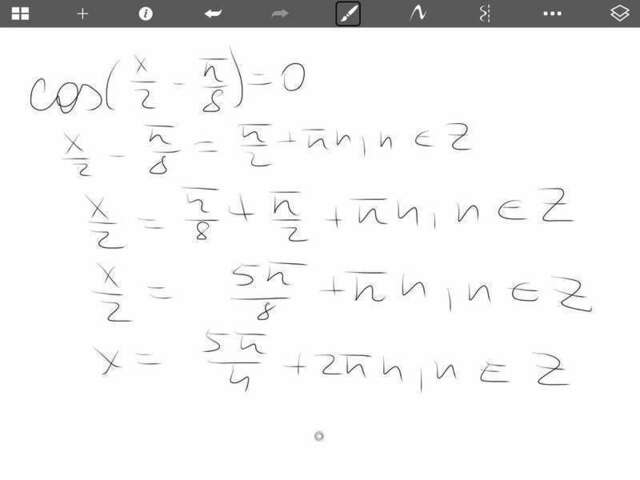 cos(x/2 - π/8) = 0
x/2 - π/8 = π/2 + πn, n ∈ Z
x/2 = π/8 + π/2 + πn, n ∈ Z
x/2 = 5π/8 + πn, n ∈ Z
x = 5π/4 + 2πn, n ∈ Z